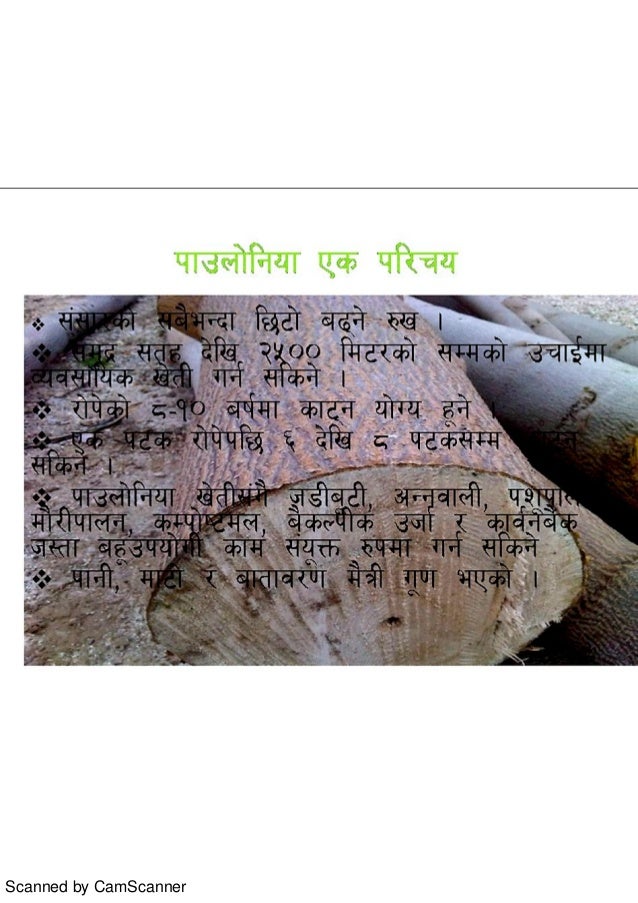 पाउलोनिया एक परिचय
❖ संसारको सबैभन्दा छिटो बढ्ने रुख ।
❖ समुद्र सतह देखि २५०० मिटरको सम्मको उचाईमा
व्यवसायिक खेती गर्न सकिने ।
❖ रोपेको ८-१० बर्षमा काट्न योग्य हूने ।
❖ एक पटक रोपेपछि ६ देखि ८ पटकसम्म
सकिने ।
❖ पाउलोनिया खेतीसंगै जडीबुटी, अन्नवाली,
मौरीपालन, कम्पोष्टमल, बैकल्पीक उर्जा र कार्वनबैंक
जस्ता बहूउपयोगी काम संयूक्त रुपमा गर्न सकिने
❖ पानी, माटो र बातावरण मैत्री गूण भएको ।
Scanned by CamScanner